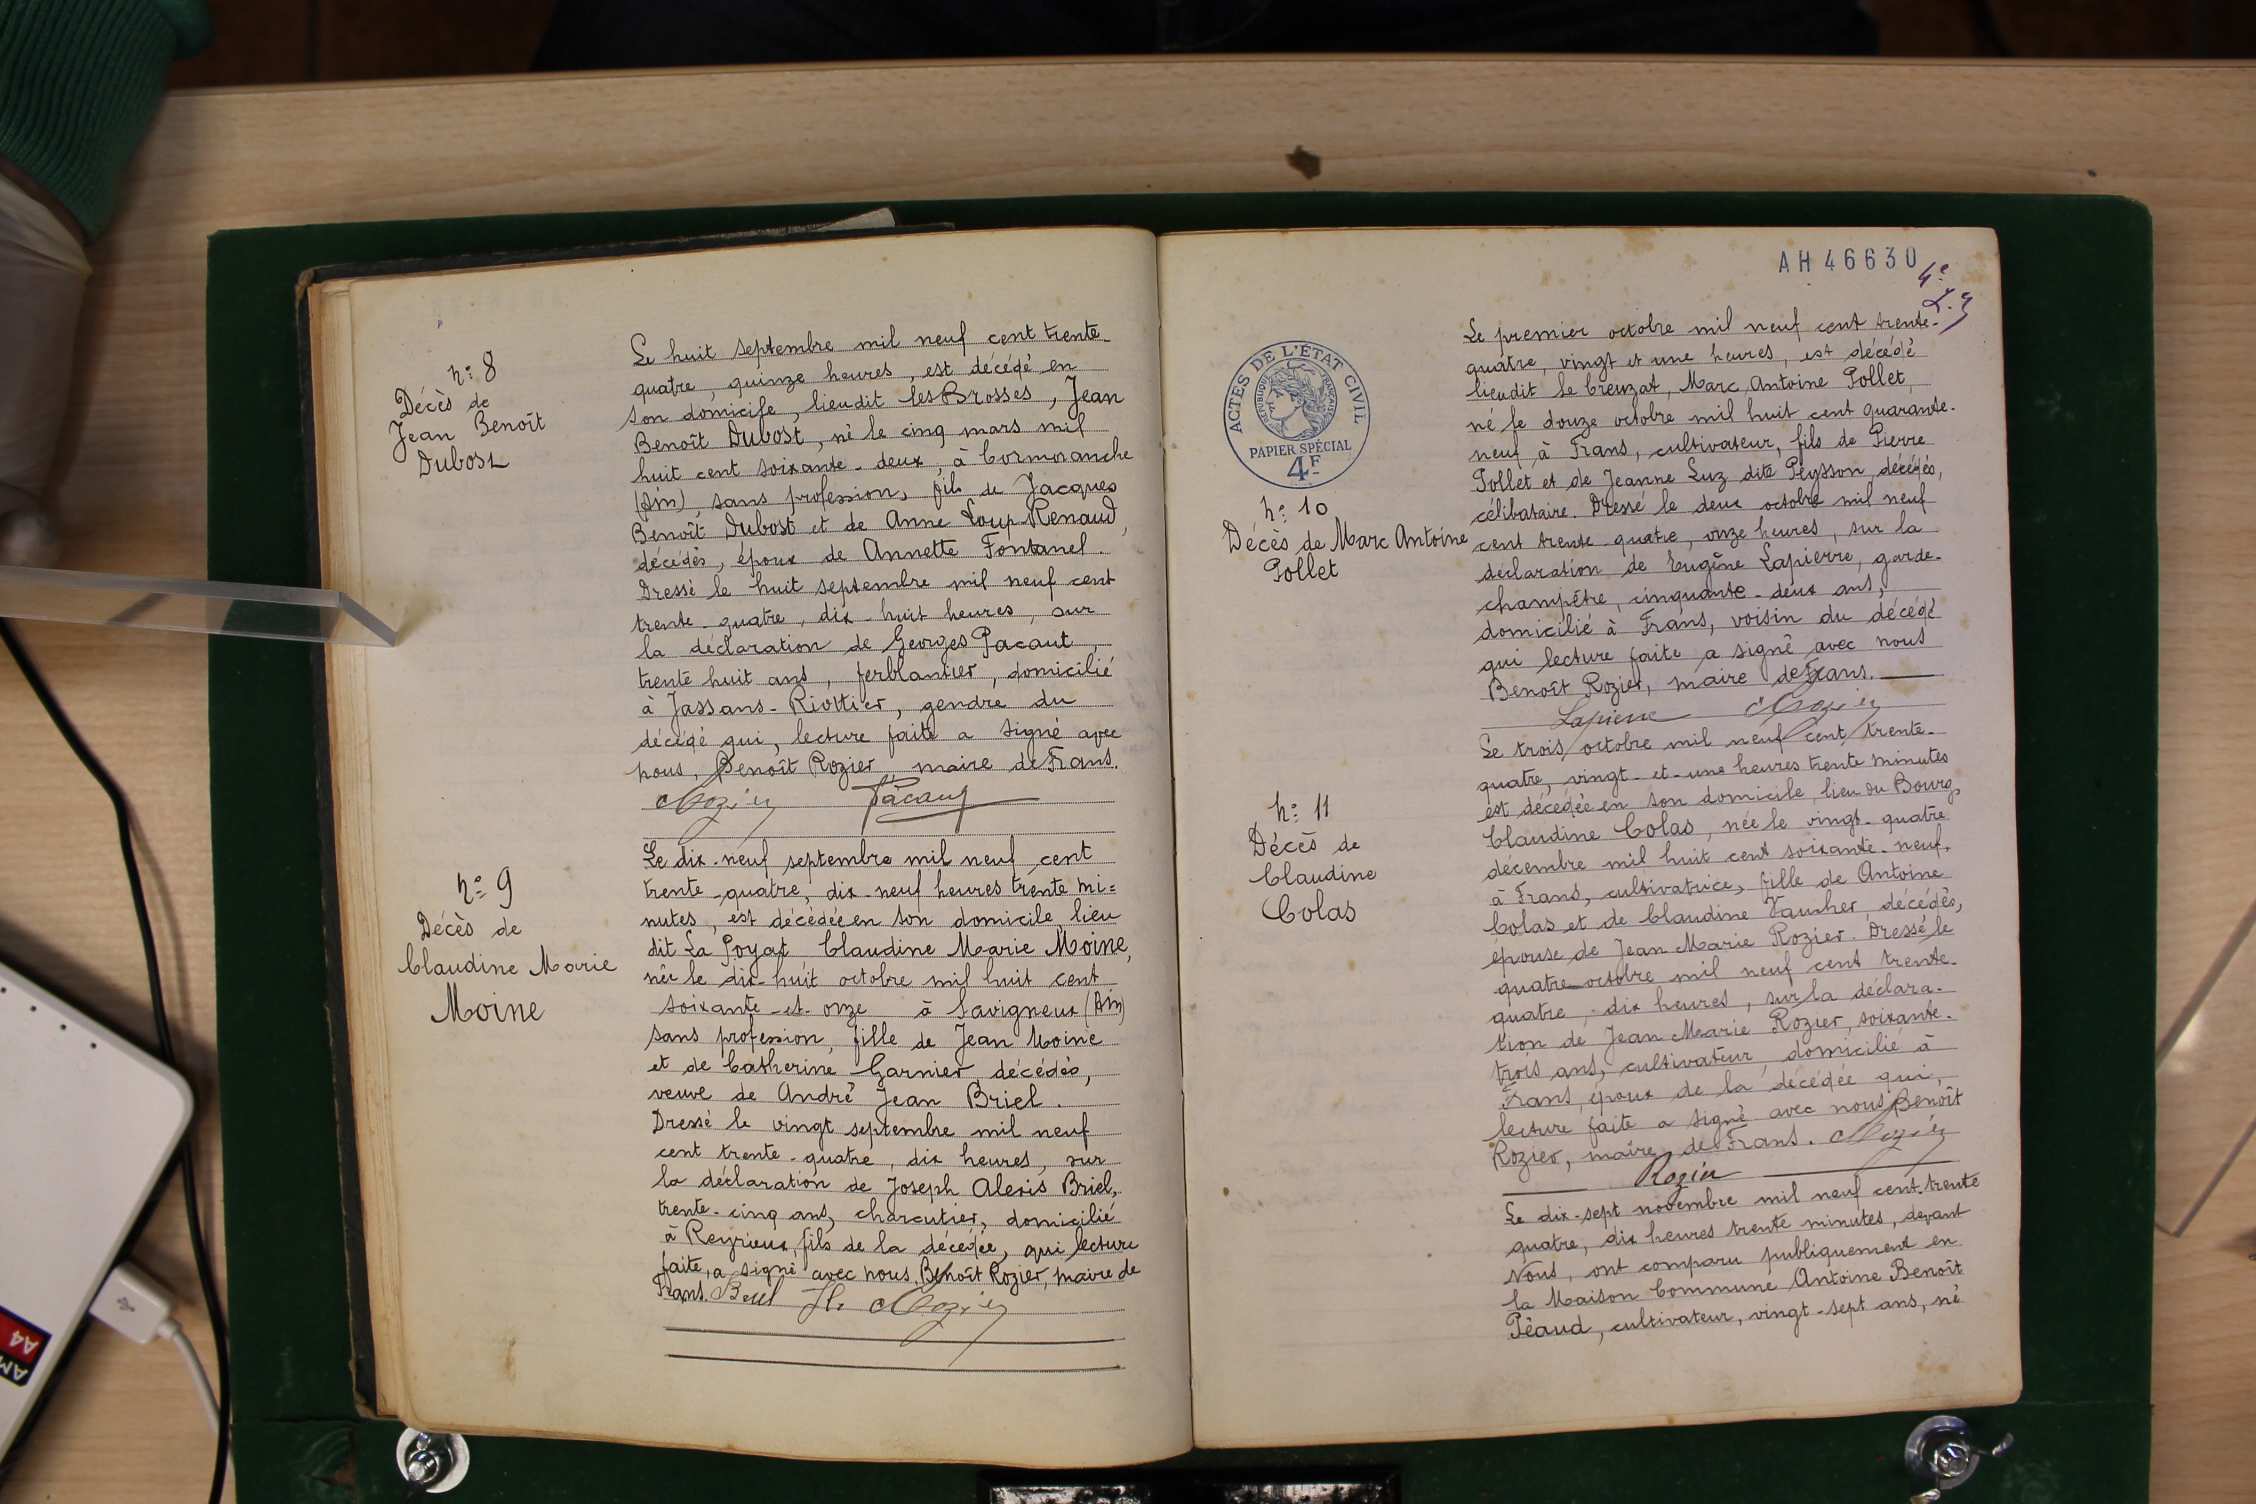 n: 8
Décès de
Jean Benoît
Dubost
Le huit septembre mil neuf cent trente-
quatre, quinze heures, est décédé en
son domicile, lieudit les Brosses, Jean
Benoît Dubost, né le cinq mars mil
huit cent soixante-deux, à Cormoranche
(Ain), sans profession, fils de Jacques
Benoît Dubost et de Anne Loup-Renaud,
décédés, époux de Annette Fontanel.
Dressé le huit septembre mil neuf cent
trente-quatre, dix-huit heures, sur
la déclaration de Georges Pacaut,
trente huit ans, ferblantier, domicilié
à Jassans-Riottier, gendre du
décédé qui, lecture faite a signé avec
nous, Benoît Rozier, maire de Frans.
Rozier Pacaut
n: 9
Décès de
Claudine Marie
Moine
Le dix-neuf septembre mil neuf cent
trente-quatre, dix-neuf heures trente mi=
nutes, est décédée en son domicile, lieu
dit La Poyat, Claudine Marie Moine,
née le dix-huit octobre mil huit cent
soixante-et-onze à Savigneux (Ain)
sans profession, fille de Jean Moine
et de Catherine Garnier décédés,
veuve de André Jean Briel.
Dressé le vingt septembre mil neuf
cent trente-quatre, dix heures, sur
la déclaration de Joseph Alexis Briel,
trente-cinq ans, charcutier, domicilié
à Reyrieux, fils de la décédée, qui lecture
faite, a signé avec nous, Benoît Rozier, maire de
Frans. Briel Rozier
AH 46630
4e
ACTES DE L'ÉTAT CIVIL
RÉPUBLIQUE FRANÇAISE
PAPIER SPÉCIAL
4F
n: 10
Décès de Marc Antoine
Pollet
Le premier octobre mil neuf cent trente-
quatre, vingt et une heures, est décédé
lieudit Le Creuzat, Marc Antoine Pollet,
né le douze octobre mil huit cent quarante-
neuf à Frans, cultivateur, fils de Pierre
Pollet et de Jeanne Luz dite Peysson, décédés,
célibataire. Dressé le deux octobre mil neuf
cent trente quatre, onze heures, sur la
déclaration de Eugène Lapierre, garde-
champêtre, cinquante-deux ans,
domicilié à Frans, voisin du décédé
qui lecture faite a signé avec nous
Benoît Rozier, maire de Frans.
Lapierre Rozier
n: 11
Décès de
Claudine
Colas
Le trois octobre mil neuf cent trente-
quatre, vingt-et-une heures trente minutes
est décédée en son domicile, lieu du Bourg,
Claudine Colas, née le vingt-quatre
décembre mil huit cent soixante-neuf,
à Frans, cultivatrice, fille de Antoine
Colas et de Claudine Vauher, décédés,
épouse de Jean Marie Rozier. Dressé le
quatre octobre mil neuf cent trente-
quatre, dix heures, sur la déclara-
tion de Jean Marie Rozier, soixante-
trois ans, cultivateur, domicilié à
Frans, époux de la décédée qui,
lecture faite a signé avec nous Benoît
Rozier, maire de Frans. Rozier
Rozier
Le dix-sept novembre mil neuf cent trente
quatre, dix heures trente minutes, devant
Nous, ont comparu publiquement en
la Maison Commune Antoine Benoît
Péaud, cultivateur, vingt-sept ans, né